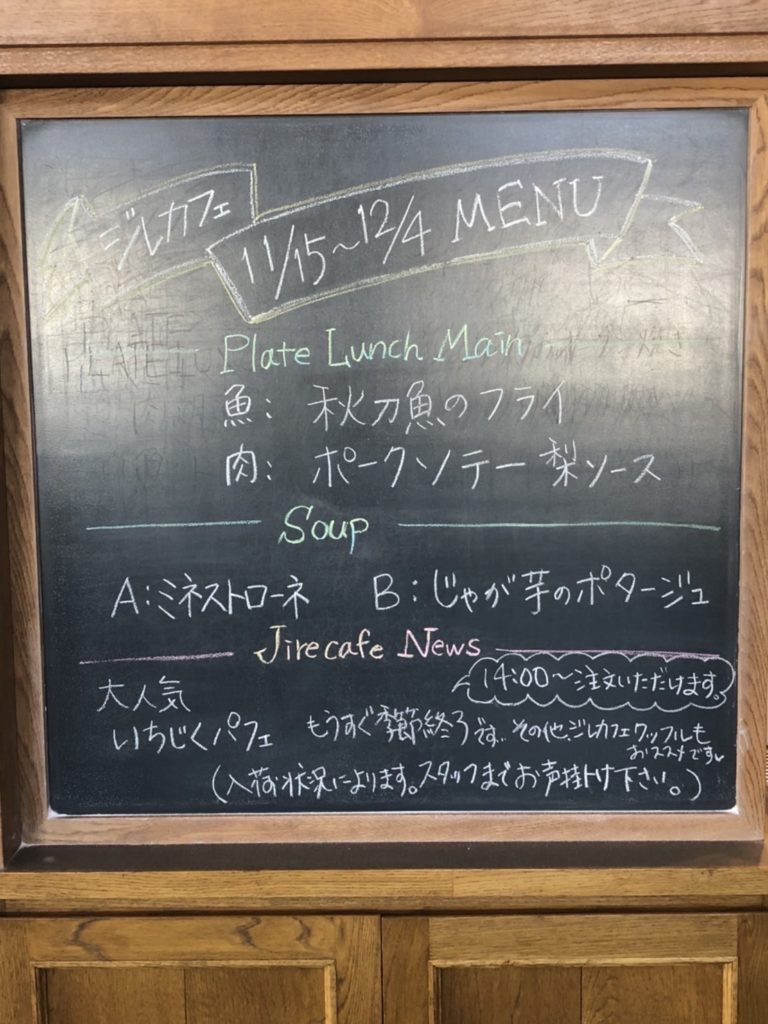 ジルカフェ
11/15~12/4 MENU
Plate Lunch Main
魚: 秋刀魚のフライ
肉: ポークソテー 梨ソース
Soup
A:ミネストローネ B:じゃが芋のポタージュ
Jirecafe News
14:00~注文いただけます。
大人気
いちじくパフェ もうすぐ季節終了です。その他、ジルカフェワッフルも
おススメです♥
(入荷状況によります。スタッフまでお声掛け下さい。)